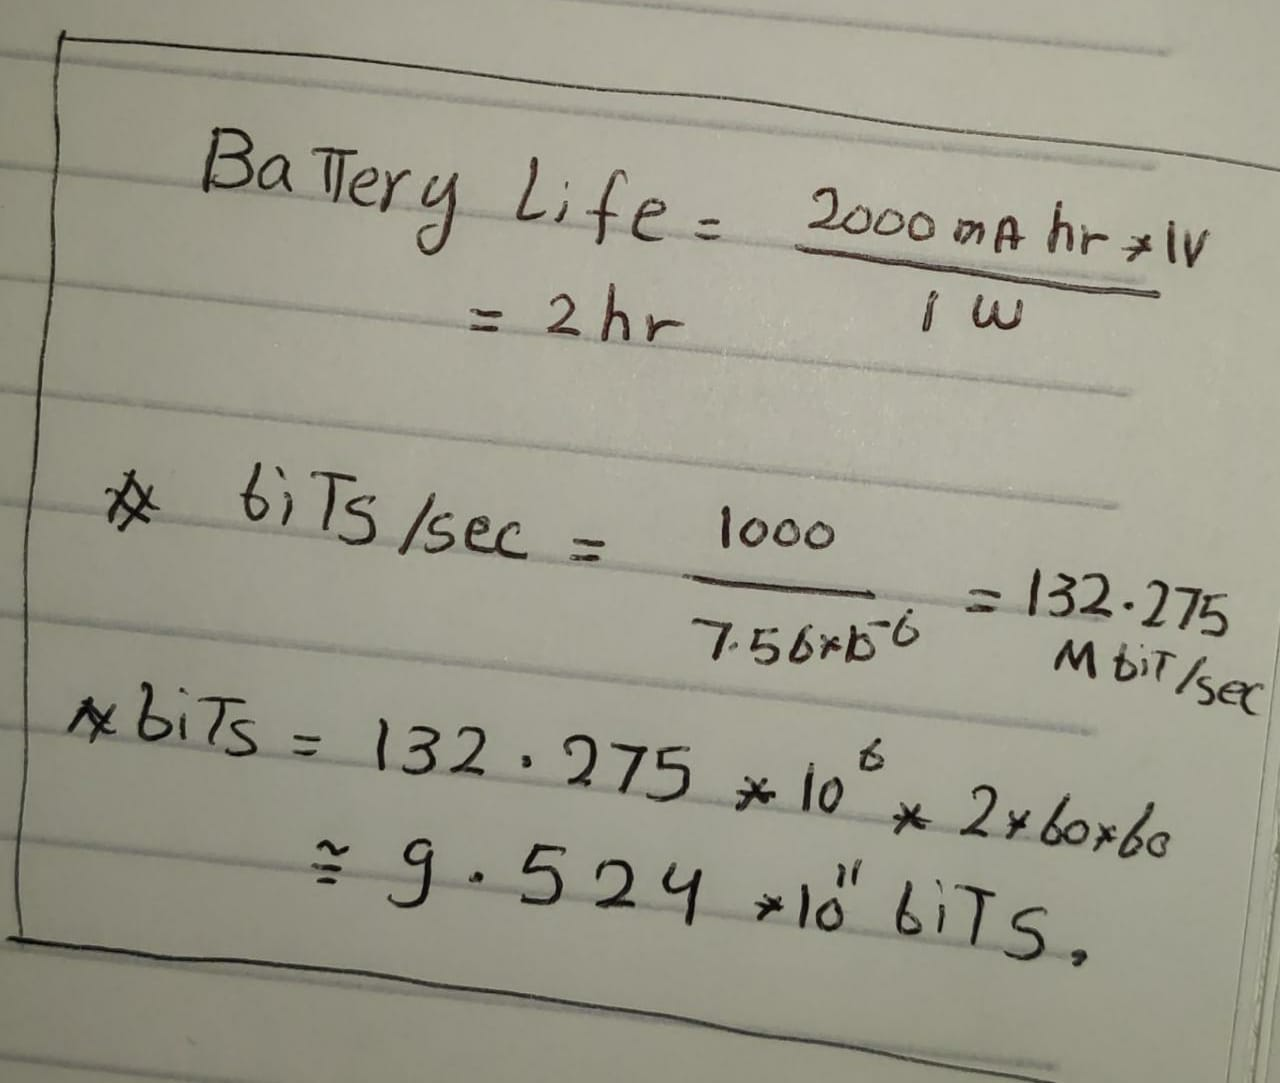 Battery Life = 2000 mA hr * 1V / 1 W
= 2 hr
* bits/sec = 1000 / 7.56*10^-6 = 132.275 Mbit/sec
* bits = 132.275 * 10^6 * 2*60*60
≅ 9.524 *10^11 bits.